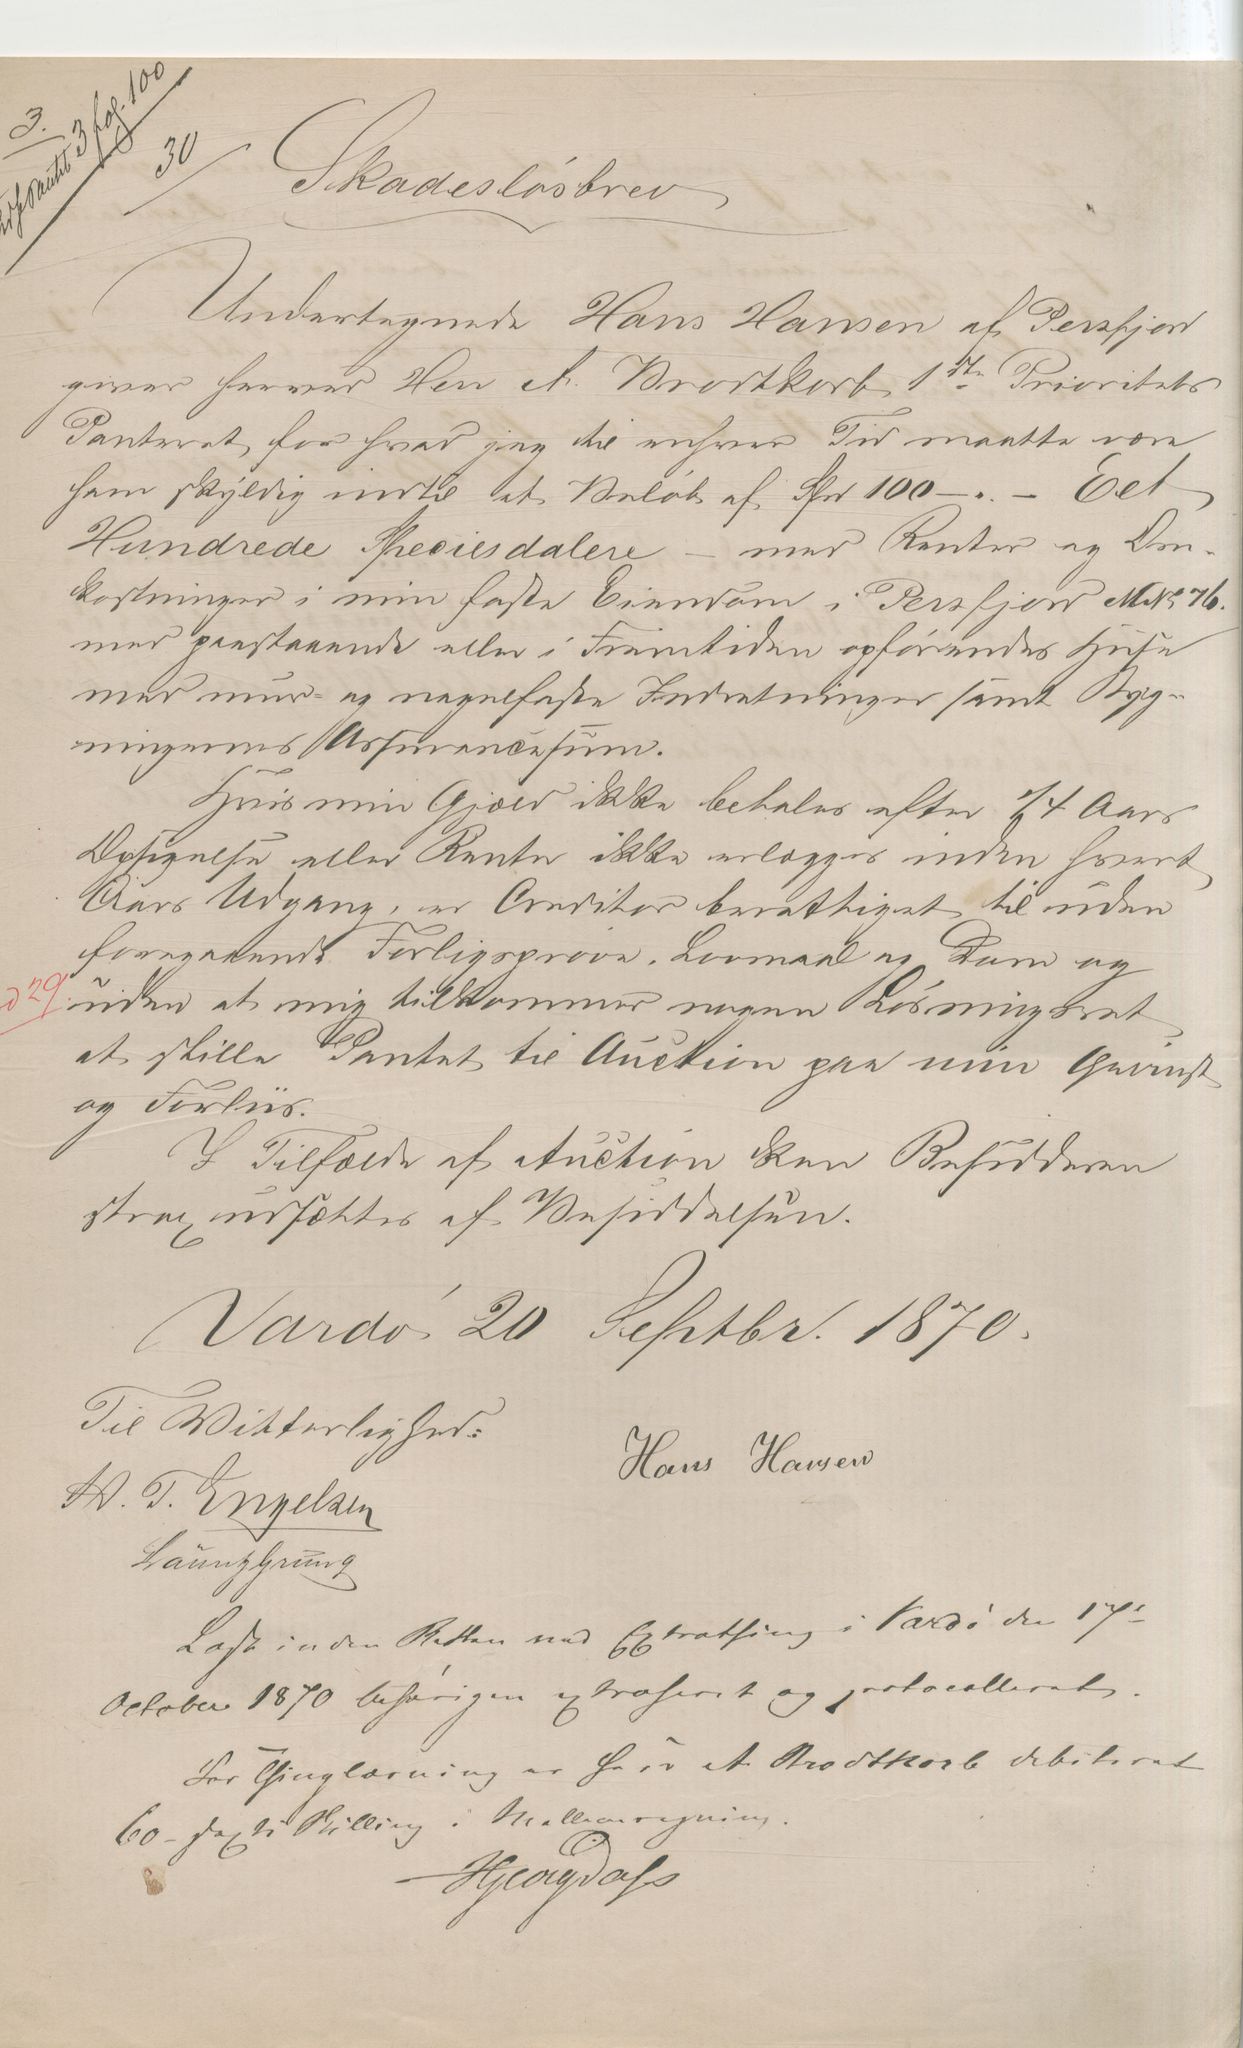 3.
3 fol. 100
30
Skadesløsbrev
Undertegnede Hans Hansen af Persfjord
giver herved Hrr A. Brodtkorb 1ste Prioritets
Panteret for hvad jeg til enhver Tid maatte være
ham skyldig indtil et Beløb af Spd 100 – . – Eet
Hundrede Speciesdalere – med Renter og Om-
kostninger i min faste Eiendom i Persfjord M.No. 76.
med paastaaende eller i Fremtiden opførendes Huse
med mur- og nagelfaste Indretninger samt Byg-
ningernes Assurancesum.
Hvis min Gjæld ikke betales efter 1/4 Aars
Opsigelse eller Renter ikke erlægges inden hvert
Aars Udgang, er Creditor berettiget til uden
foregaaende Forligsprøve, Lovmaal og Dom og
29
uden at mig tilkommer nogen Løsningsret
at stille Pantet til Auction paa min Gevinst
og Forliis.
I Tilfælde af Auction kan Besidderen
strax udsættes af Besiddelsen.
Vardø 20 Septbr. 1870.
Til Vitterlighed:
Hans Hansen
W. T. Engelsen
Læst inden Retten ved Extrathing i Vardø den 17de
October 1870 behørigen extraheret og protocolleret.
For Thinglæsning er Herr A Brodtkorb debiteret
60 – sexti Skilling i Mellemregning.